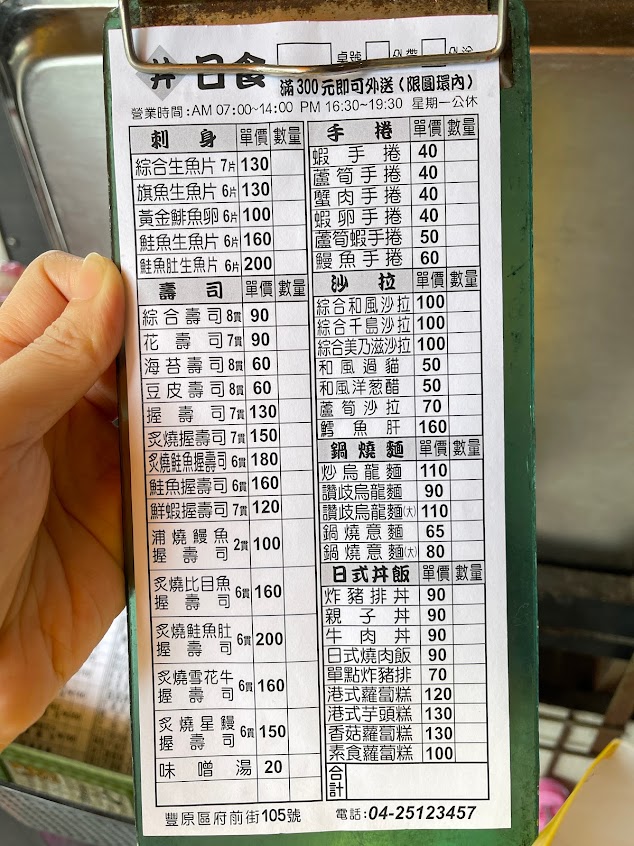 丼 日食
桌號 外帶 外送
滿300元即可外送(限圓環內)
營業時間:AM 07:00~14:00 PM 16:30~19:30 星期一公休
刺身 單價 數量
綜合生魚片 7片 130
旗魚生魚片 6片 130
黃金鯡魚卵 6片 100
鮭魚生魚片 6片 160
鮭魚肚生魚片 6片 200
壽司 單價 數量
綜合壽司 8貫 90
花壽司 7貫 90
海苔壽司 8貫 60
豆皮壽司 8貫 60
握壽司 7貫 130
炙燒握壽司 7貫 150
炙燒鮭魚握壽司 6貫 180
鮭魚握壽司 6貫 160
鮮蝦握壽司 7貫 120
浦燒鰻魚
握壽司 2貫 100
炙燒比目魚
握壽司 6貫 160
炙燒鮭魚肚
握壽司 6貫 200
炙燒雪花牛
握壽司 6貫 160
炙燒星鰻
握壽司 6貫 150
味噌湯 20
手捲 單價 數量
蝦手捲 40
蘆筍手捲 40
蟹肉手捲 40
蝦卵手捲 40
蘆筍蝦手捲 50
鰻魚手捲 60
沙拉 單價 數量
綜合和風沙拉 100
綜合千島沙拉 100
綜合美乃滋沙拉 100
和風過貓 50
和風洋葱醋 50
蘆筍沙拉 70
鱈魚肝 160
鍋燒麵 單價 數量
炒烏龍麵 110
讚歧烏龍麵 90
讚歧烏龍麵(大) 110
鍋燒意麵 65
鍋燒意麵(大) 80
日式丼飯 單價 數量
炸豬排丼 90
親子丼 90
牛肉丼 90
日式燒肉飯 90
單點炸豬排 70
港式蘿蔔糕 120
港式芋頭糕 130
香菇蘿蔔糕 130
素食蘿蔔糕 100
合計
豐原區府前街105號 電話:04-25123457